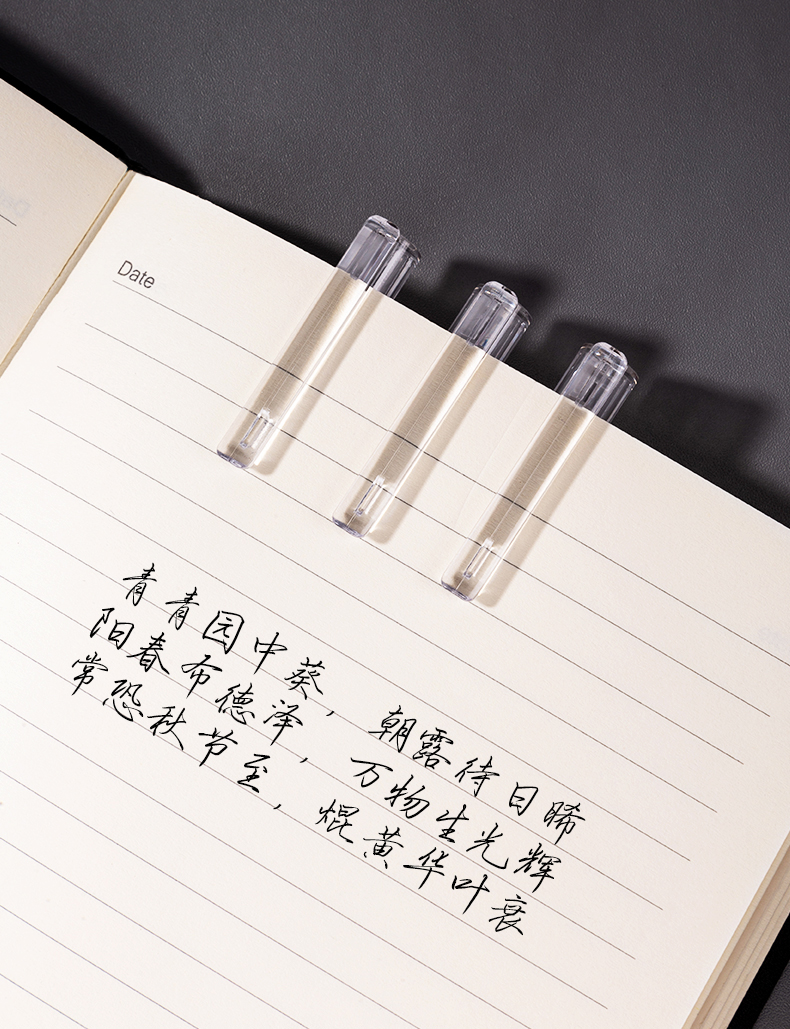 Date
青青园中葵，朝露待日晞
阳春布德泽，万物生光辉
常恐秋节至，焜黄华叶衰